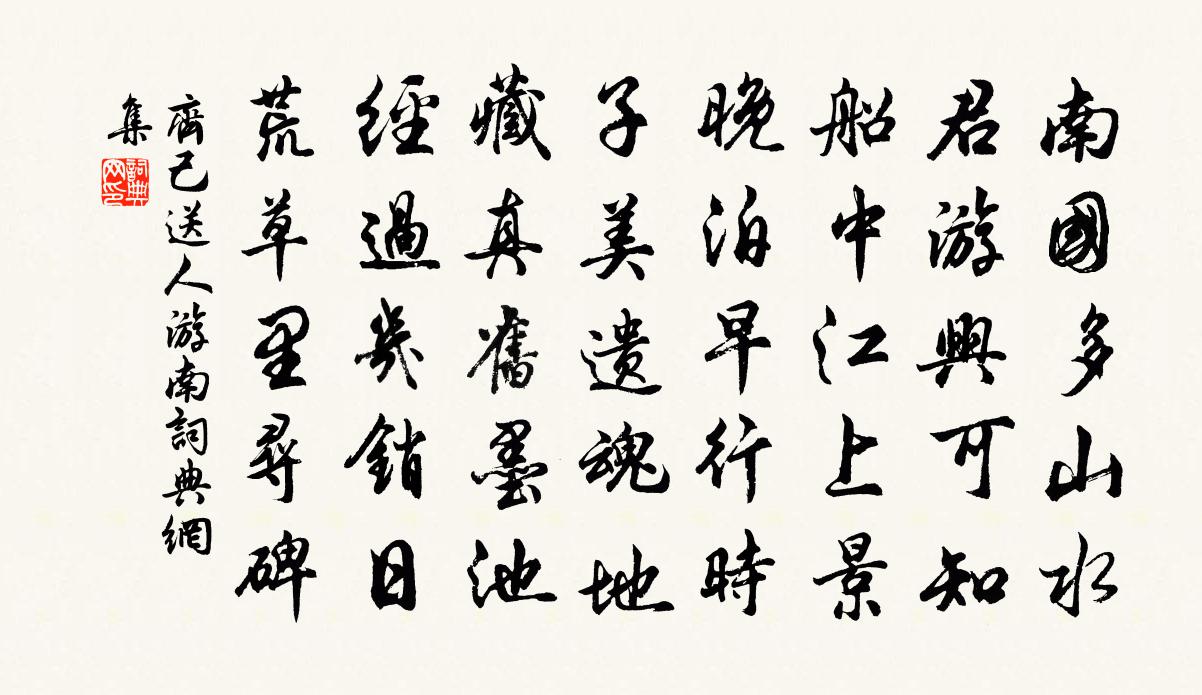 南國多山水
君游興可知
船中江上景
晚泊早行時
子美遺魂地
藏真舊墨池
經過幾銷日
荒草里尋碑
齊己送人游南詞典網
集
詞典
网印